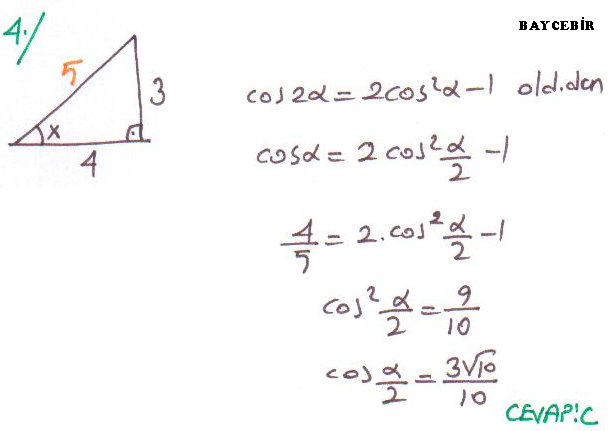 4./
BAYCEBİR
5
3
x
4
cos2α = 2cos²α - 1 old.dan
cosα = 2 cos² α/2 - 1
4/5 = 2.cos² α/2 - 1
cos² α/2 = 9/10
cos α/2 = 3√10/10
CEVAP:C